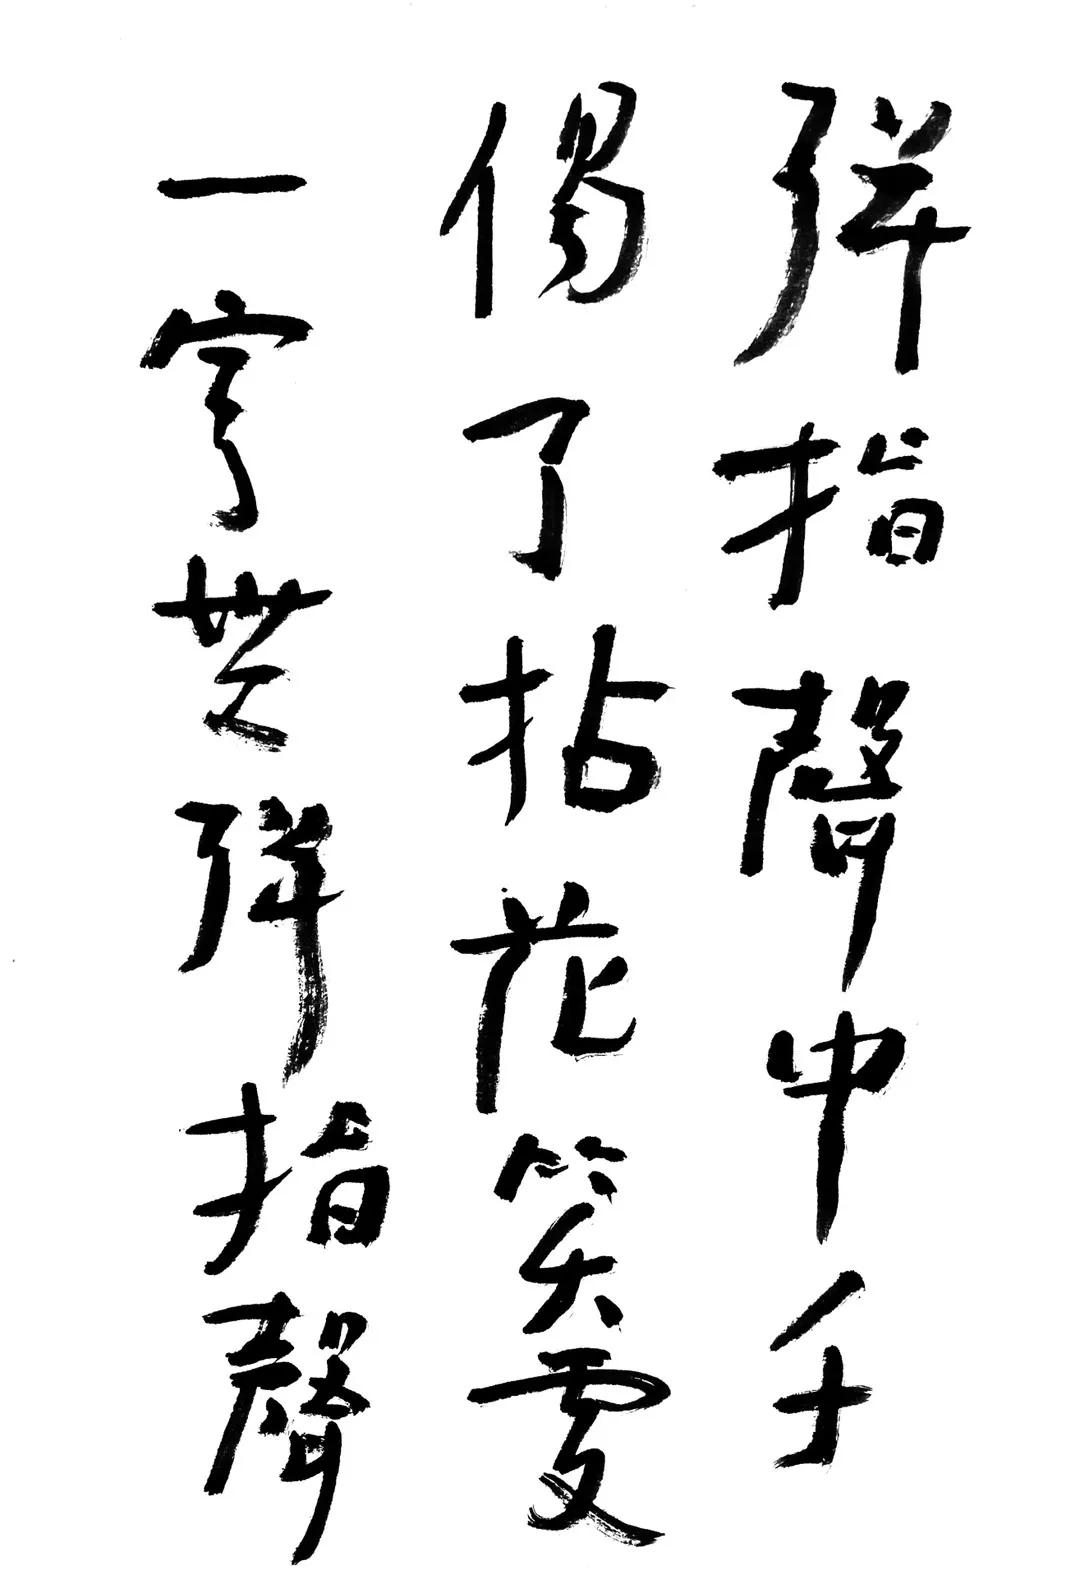 彈指聲中千
偈了拈花笑處
一字無彈指聲